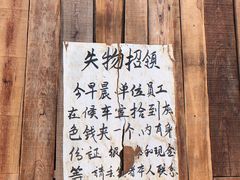 失物招领
今早晨单位员工
在候车室拾到灰
色钱夹一个内有身
份证 银 和现金
等 请 本人联